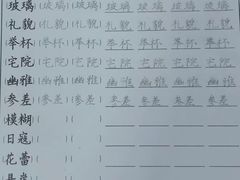 玻璃(玻璃)(玻璃) 玻璃 玻璃 玻璃 玻璃
礼貌(礼貌)(礼貌) 礼貌 礼貌 礼貌 礼貌
举杯(举杯)(举杯) 举杯 举杯 举杯 举杯
宅院(宅院)(宅院) 宅院 宅院 宅院 宅院
幽雅(幽雅)(幽雅) 幽雅 幽雅 幽雅 幽雅
参差(参差)(参差) 参差 参差 参差 参差
模糊( )( )
日寇( )( )
花蕾( )( )